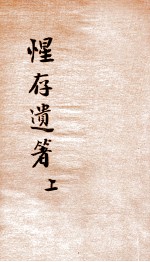 惺存遺箸上